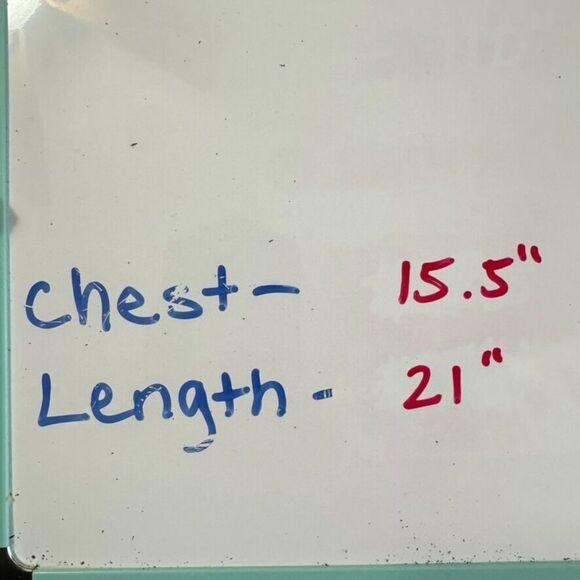 Chest- 15.5"
Length - 21"